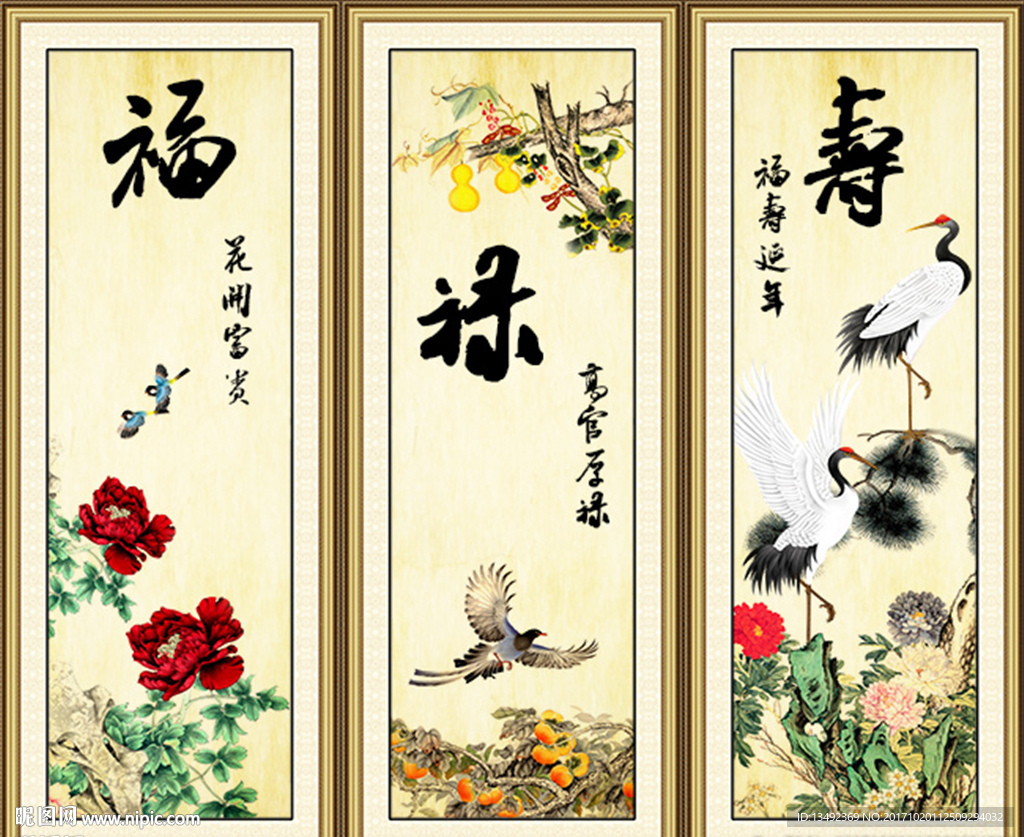 福
花開富贵
禄
高官厚禄
寿
福寿延年
昵图网 www.nipic.com
ID:13492369 NO:20171020112509294032